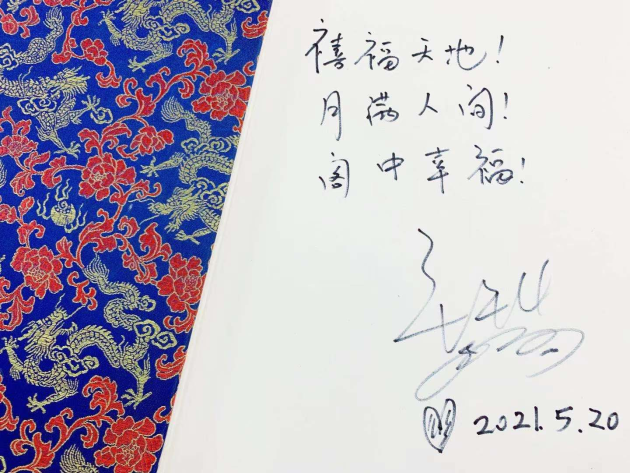 禧福天地!
月满人间!
阁中幸福!
2021.5.20